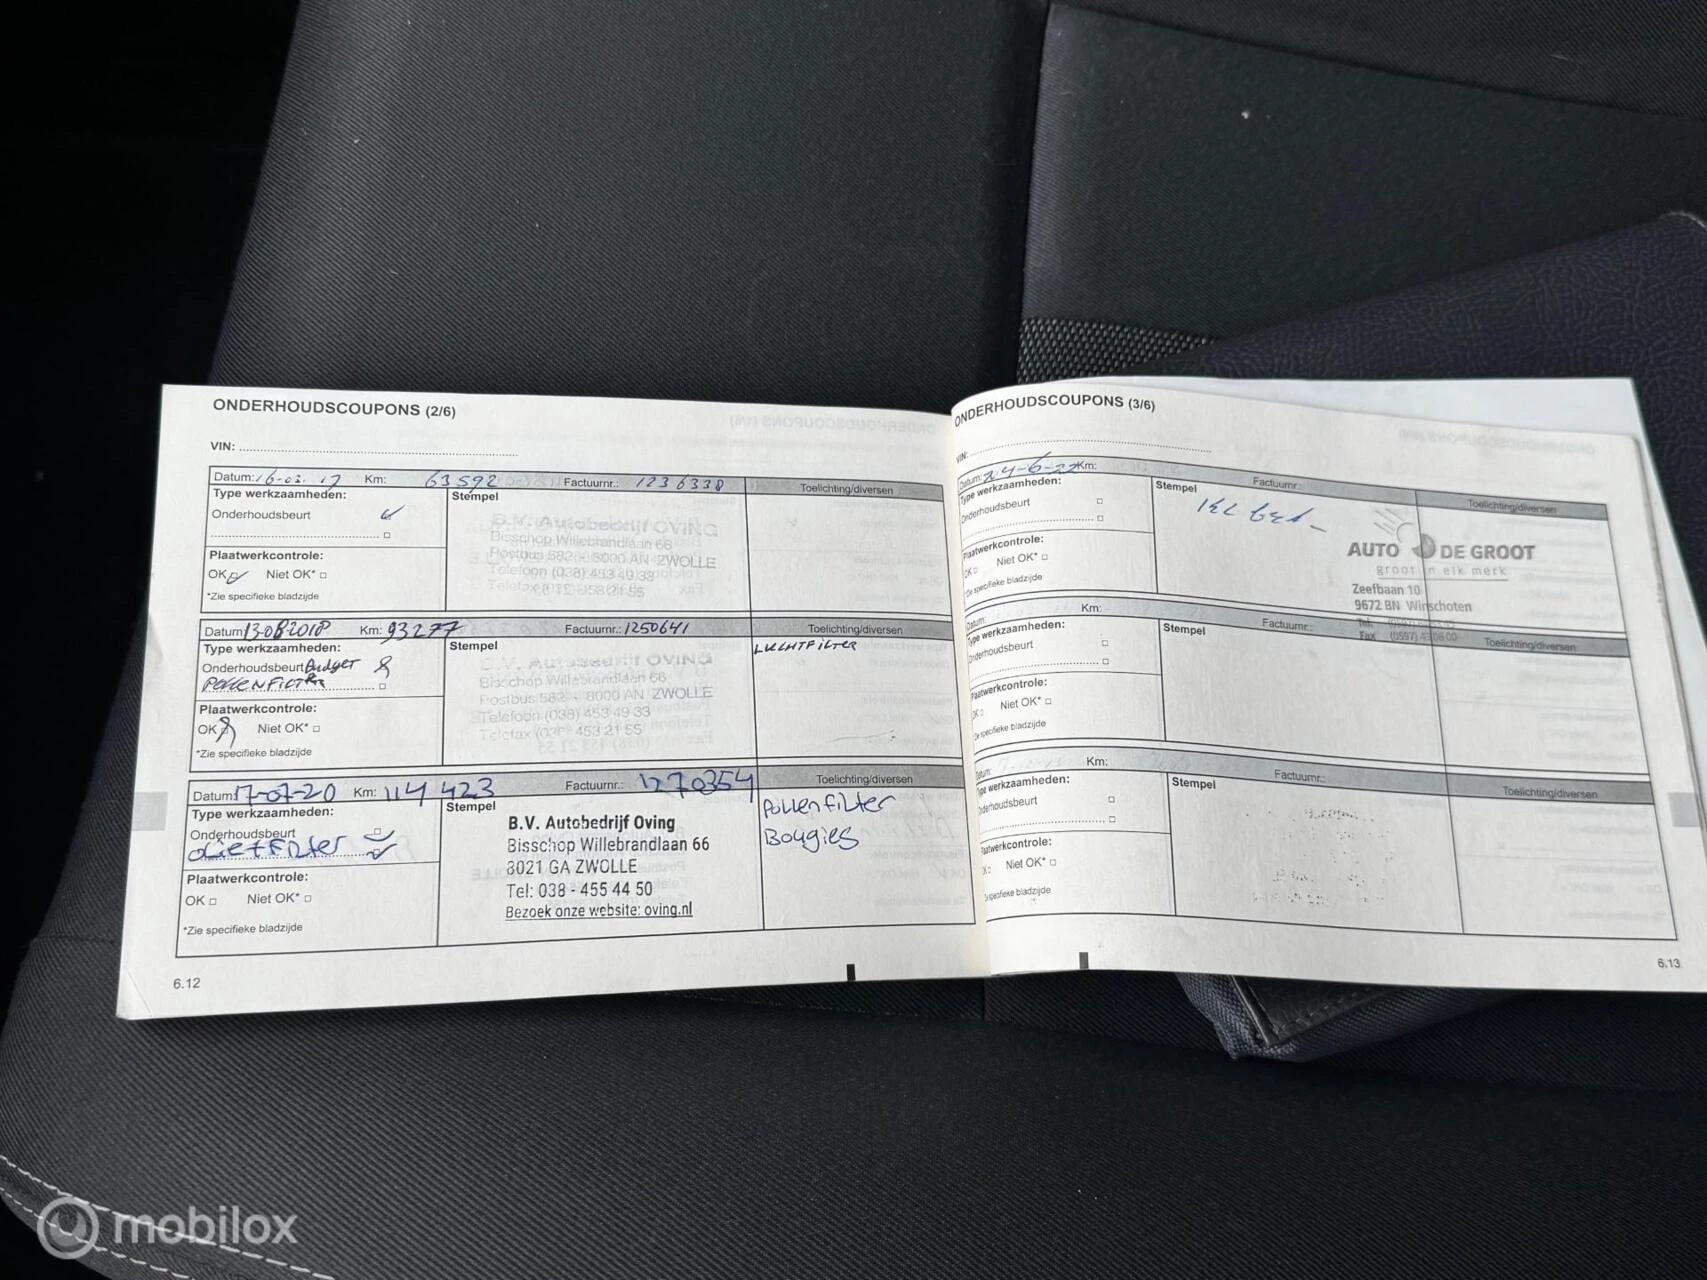 ONDERHOUDSCOUPONS (2/6)
VIN:
Datum: 16-02-17 Km: 63592 Factuurnr.: 1236338 Toelichting/diversen
Type werkzaamheden: Stempel
Onderhoudsbeurt
Plaatwerkcontrole:
OK Niet OK*
*Zie specifieke bladzijde
B.V. Autobedrijf OVING
Bisschop Willebrandlaan 66
Postbus 582 - 8000 AN ZWOLLE
Telefoon (038) 453 49 33
Telefax (038) 453 21 55
Datum 13-08-2018 Km: 93277 Factuurnr.: 1250641 Toelichting/diversen
Type werkzaamheden: Stempel LUCHTFILTER
Onderhoudsbeurt Budget
POLLENFILTER
Plaatwerkcontrole:
OK Niet OK*
*Zie specifieke bladzijde
B.V. Autobedrijf OVING
Bisschop Willebrandlaan 66
Postbus 582 - 8000 AN ZWOLLE
Telefoon (038) 453 49 33
Telefax (038) 453 21 55
Datum 17-07-20 Km: 114 423 Factuurnr.: 1270354 Toelichting/diversen
Type werkzaamheden: Stempel
Onderhoudsbeurt
olie + filter
Plaatwerkcontrole:
OK Niet OK*
*Zie specifieke bladzijde
B.V. Autobedrijf Oving
Bisschop Willebrandlaan 66
8021 GA ZWOLLE
Tel: 038 - 455 44 50
Bezoek onze website: oving.nl
Pollenfilter
Bougies
6.12
ONDERHOUDSCOUPONS (3/6)
VIN:
Datum: 24-6-22 Km: Factuurnr.: Toelichting/diversen
Type werkzaamheden: Stempel
Onderhoudsbeurt
Plaatwerkcontrole:
OK Niet OK*
specifieke bladzijde
AUTO DE GROOT
groot in elk merk
Zeefbaan 10
9672 BN Winschoten
Tel.
Fax (0597)
Datum: Km: Factuurnr.: Toelichting/diversen
Type werkzaamheden: Stempel
Onderhoudsbeurt
Plaatwerkcontrole:
OK Niet OK*
specifieke bladzijde
Datum: Km: Factuurnr.: Toelichting/diversen
Type werkzaamheden: Stempel
Onderhoudsbeurt
Plaatwerkcontrole:
Niet OK*
specifieke bladzijde
6.13
mobilox